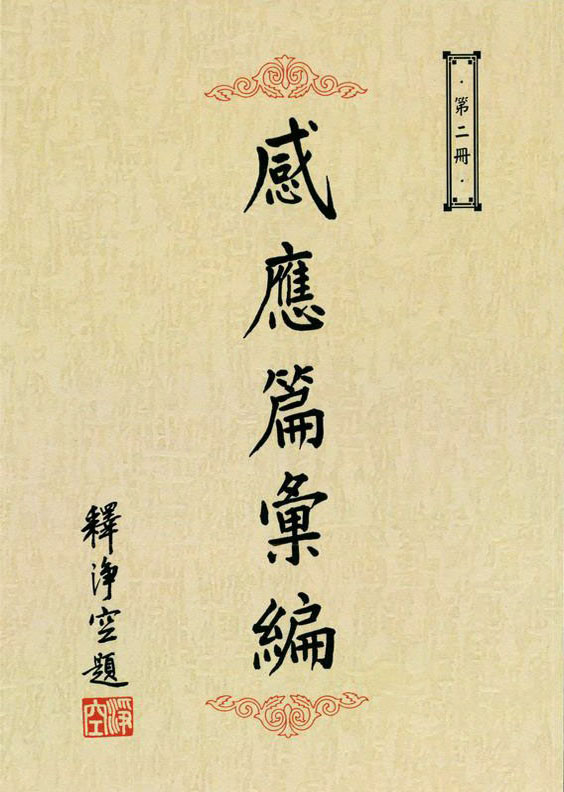 ·第二冊·
感應篇彙編
釋淨空題
淨空